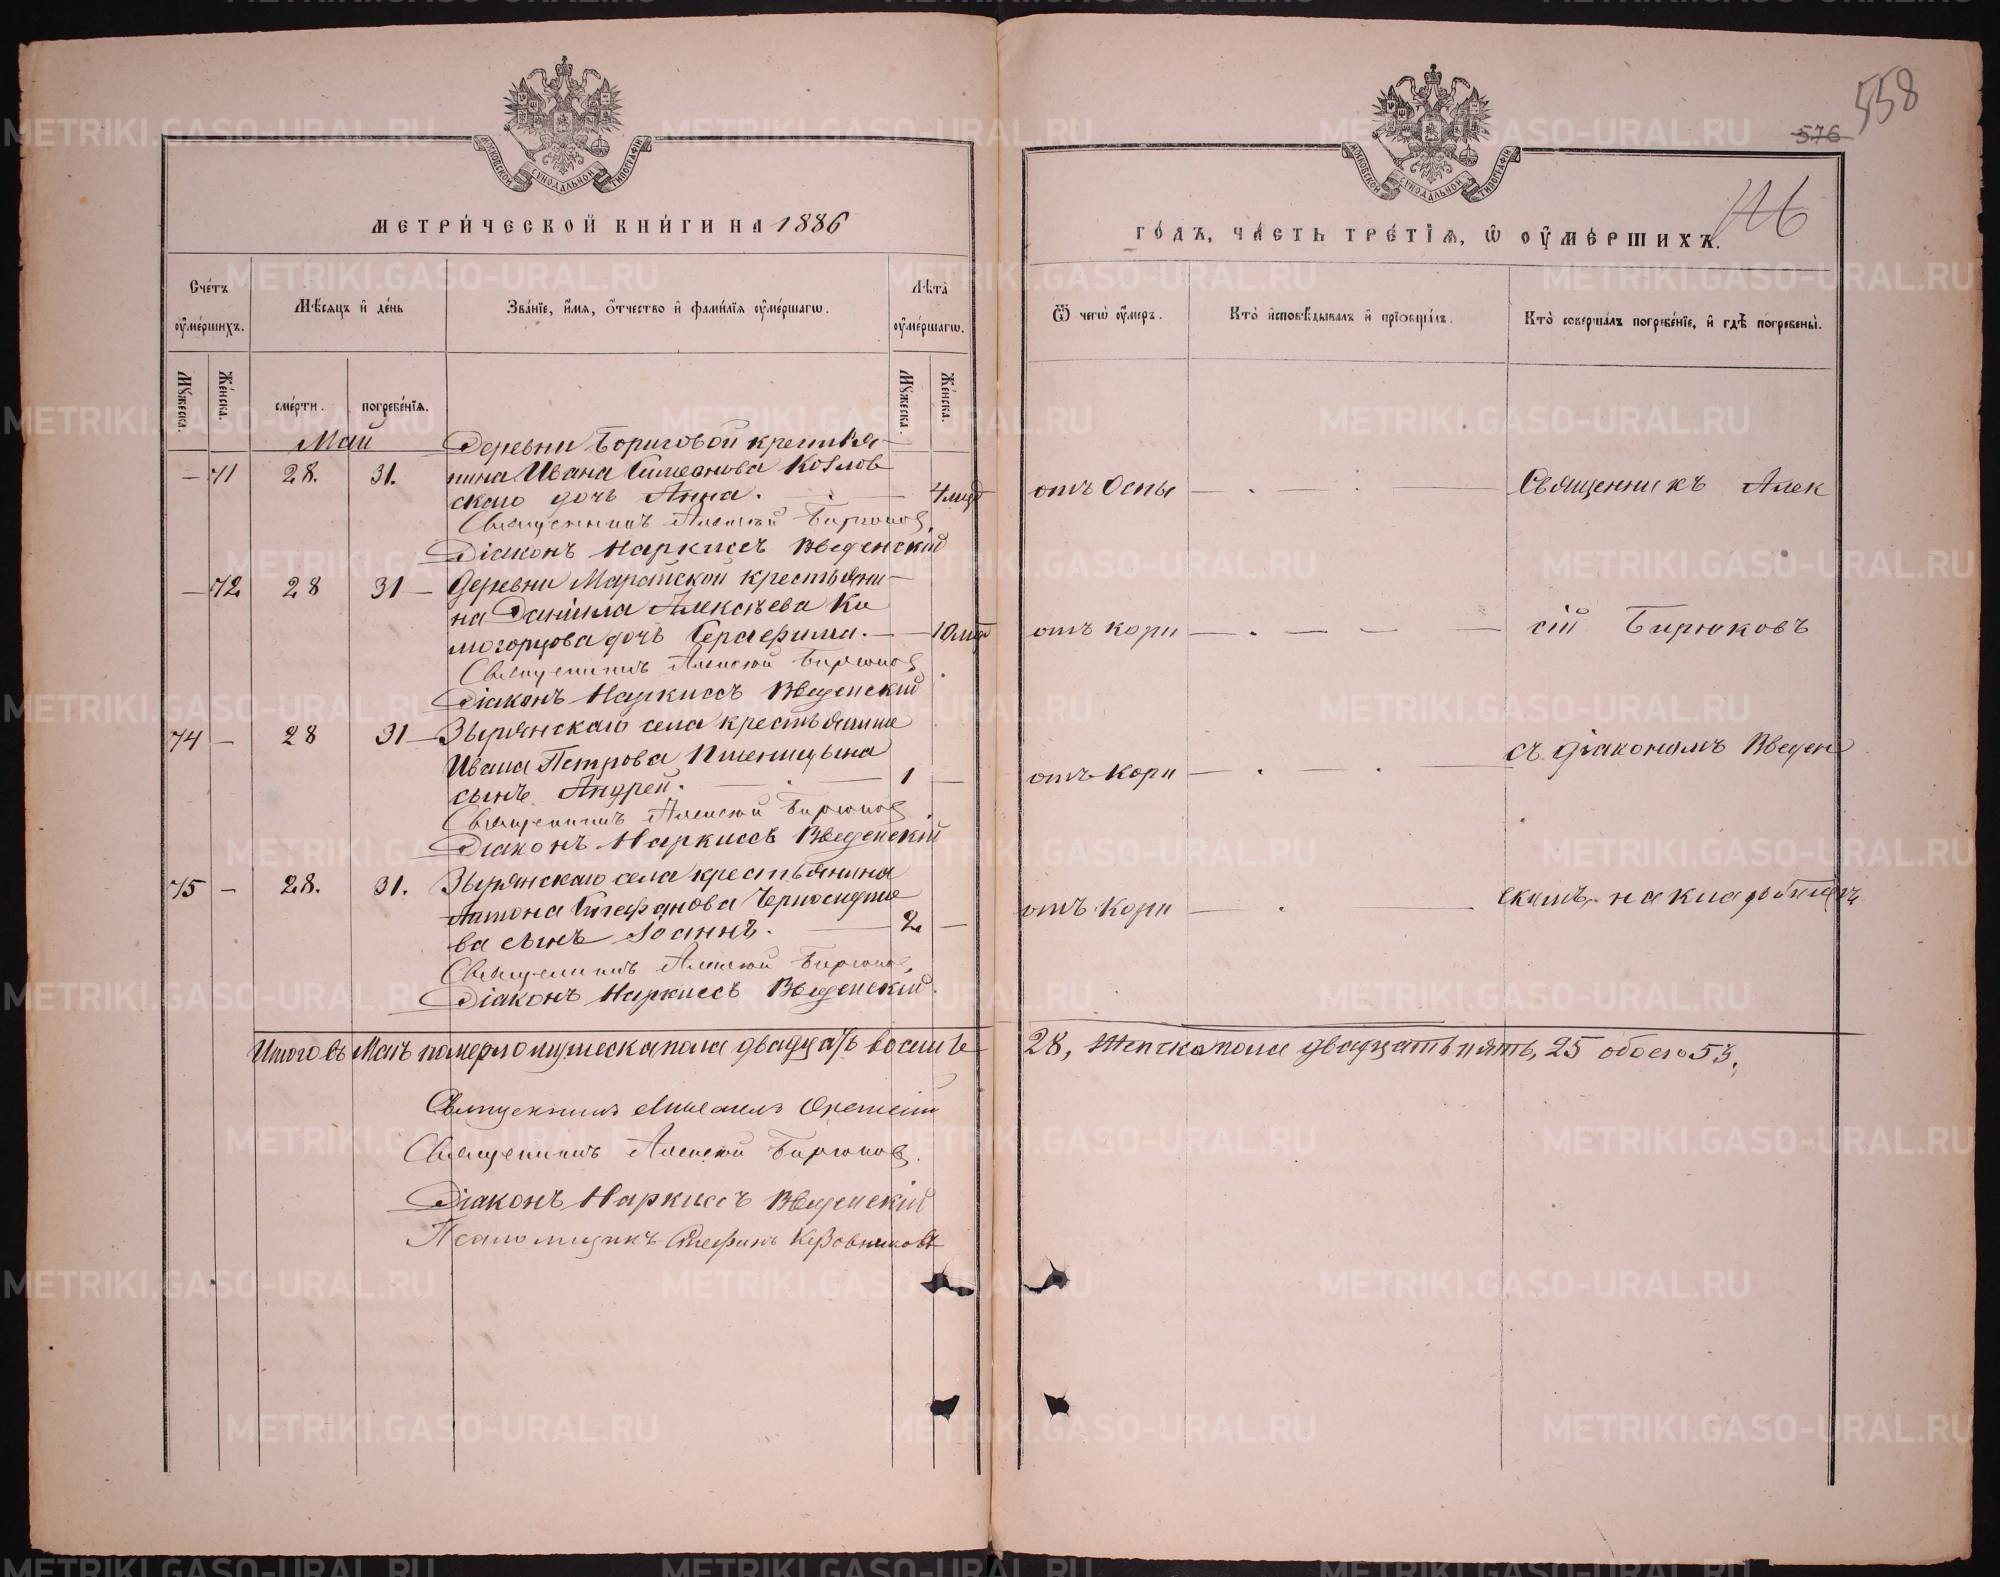 МОСКОВСКОЙ СѴНОДАЛЬНОЙ ТИПОГРАФІИ
МЕТРИ́ЧЕСКОЙ КНИ́ГИ НА 1886
Счетъ оумершихъ.
Мѣсяцъ и день
Званіе, имя, отчество и фамилія оумершагѡ.
Лѣта оумершагѡ.
Мужеска.
Женска.
смерти.
погребенія.
Мужеска.
Женска.
Май
Деревни Бориговой крестья-
— 71 28. 31. нина Ивана Симеонова Козлов
скаго дочь Анна. — — 4 мѣс
Священникъ Алексій Бирюков
Діаконъ Наркиссъ Введенскій
— 72 28 31 — Деревни Марайской крестьяни-
на Даніила Алексѣева Ки
могорцова дочь Серафима. — — 10 мѣс
Священникъ Алексій Бирюков
Діаконъ Наркиссъ Введенскій
74 — 28 31 — Зырянскаго села крестьянина
Ивана Петрова Пшеницына
сынъ Андрей. — 1 —
Священникъ Алексій Бирюков
Діаконъ Наркиссъ Введенскій
75 — 28. 31. Зырянскаго села крестьянина
Антона Стефанова Черноскуто
ва сынъ Іоаннъ. — 2 —
Священникъ Алексій Бирюков
Діаконъ Наркиссъ Введенскій.
Итого въ Маѣ померло мужеска пола двадцать восемь
Священникъ Михаилъ
Священникъ Алексій Бирюков.
Діаконъ Наркиссъ Введенскій
Псаломщикъ Стефанъ Кузовниковъ
558
576
МОСКОВСКОЙ СѴНОДАЛЬНОЙ ТИПОГРАФІИ
ГО́ДЪ, ЧА́СТЬ ТРЕ́ТІЯ, Ѡ ОУМЕ́РШИХЪ.
Ѿ чегѡ оумеръ.
Кто исповѣдывалъ и пріобщалъ.
Кто совершалъ погребеніе, и гдѣ погребены.
отъ Оспы — — Священникъ Алек
отъ кори — — сій Бирюковъ
отъ Кори — — съ діакономъ Введен
отъ Кори — скимъ, на кладбищѣ
28, Женска пола двадцать пять, 25 обоего 53.